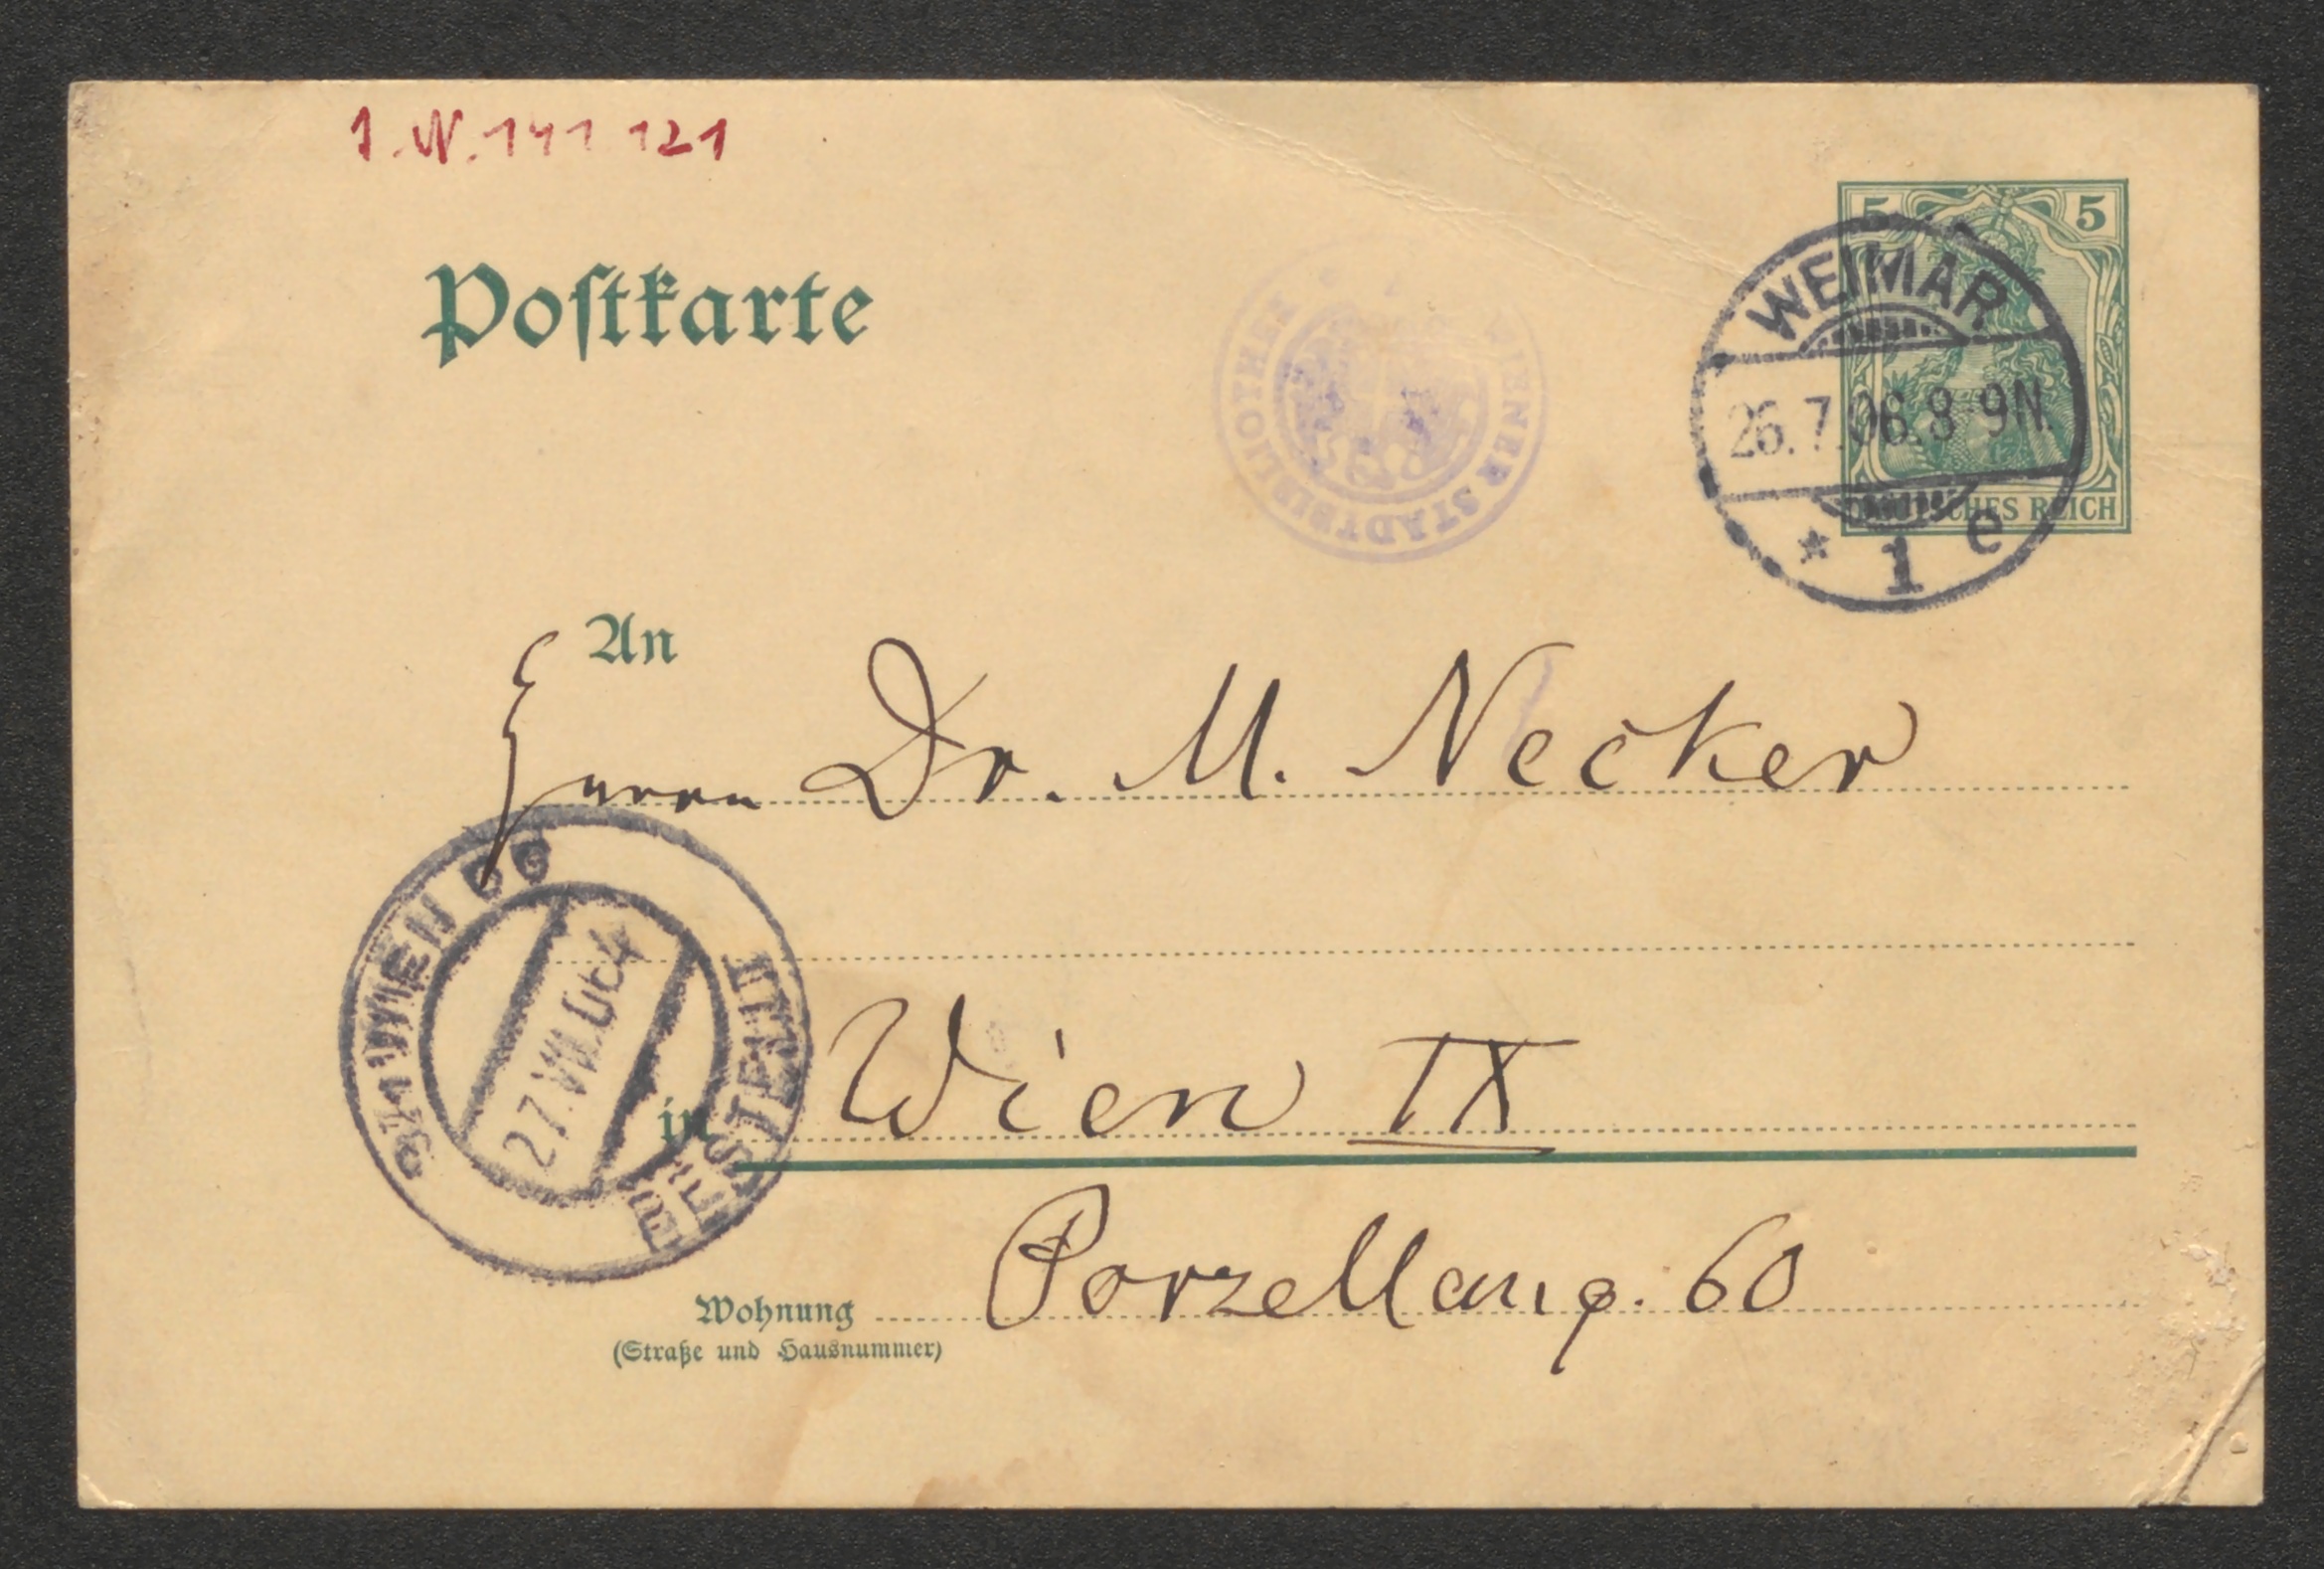 I.N. 141 121
Postkarte
WIENER STADTBIBLIOTHEK
5 5
DEUTSCHES REICH
WEIMAR
26.7.06.8-9N.
* 1 e
An
Herrn Dr. M. Necker
WIEN 66
27.VII.06
BESTELLT
in Wien IX
Wohnung Porzellang. 60
(Straße und Hausnummer)